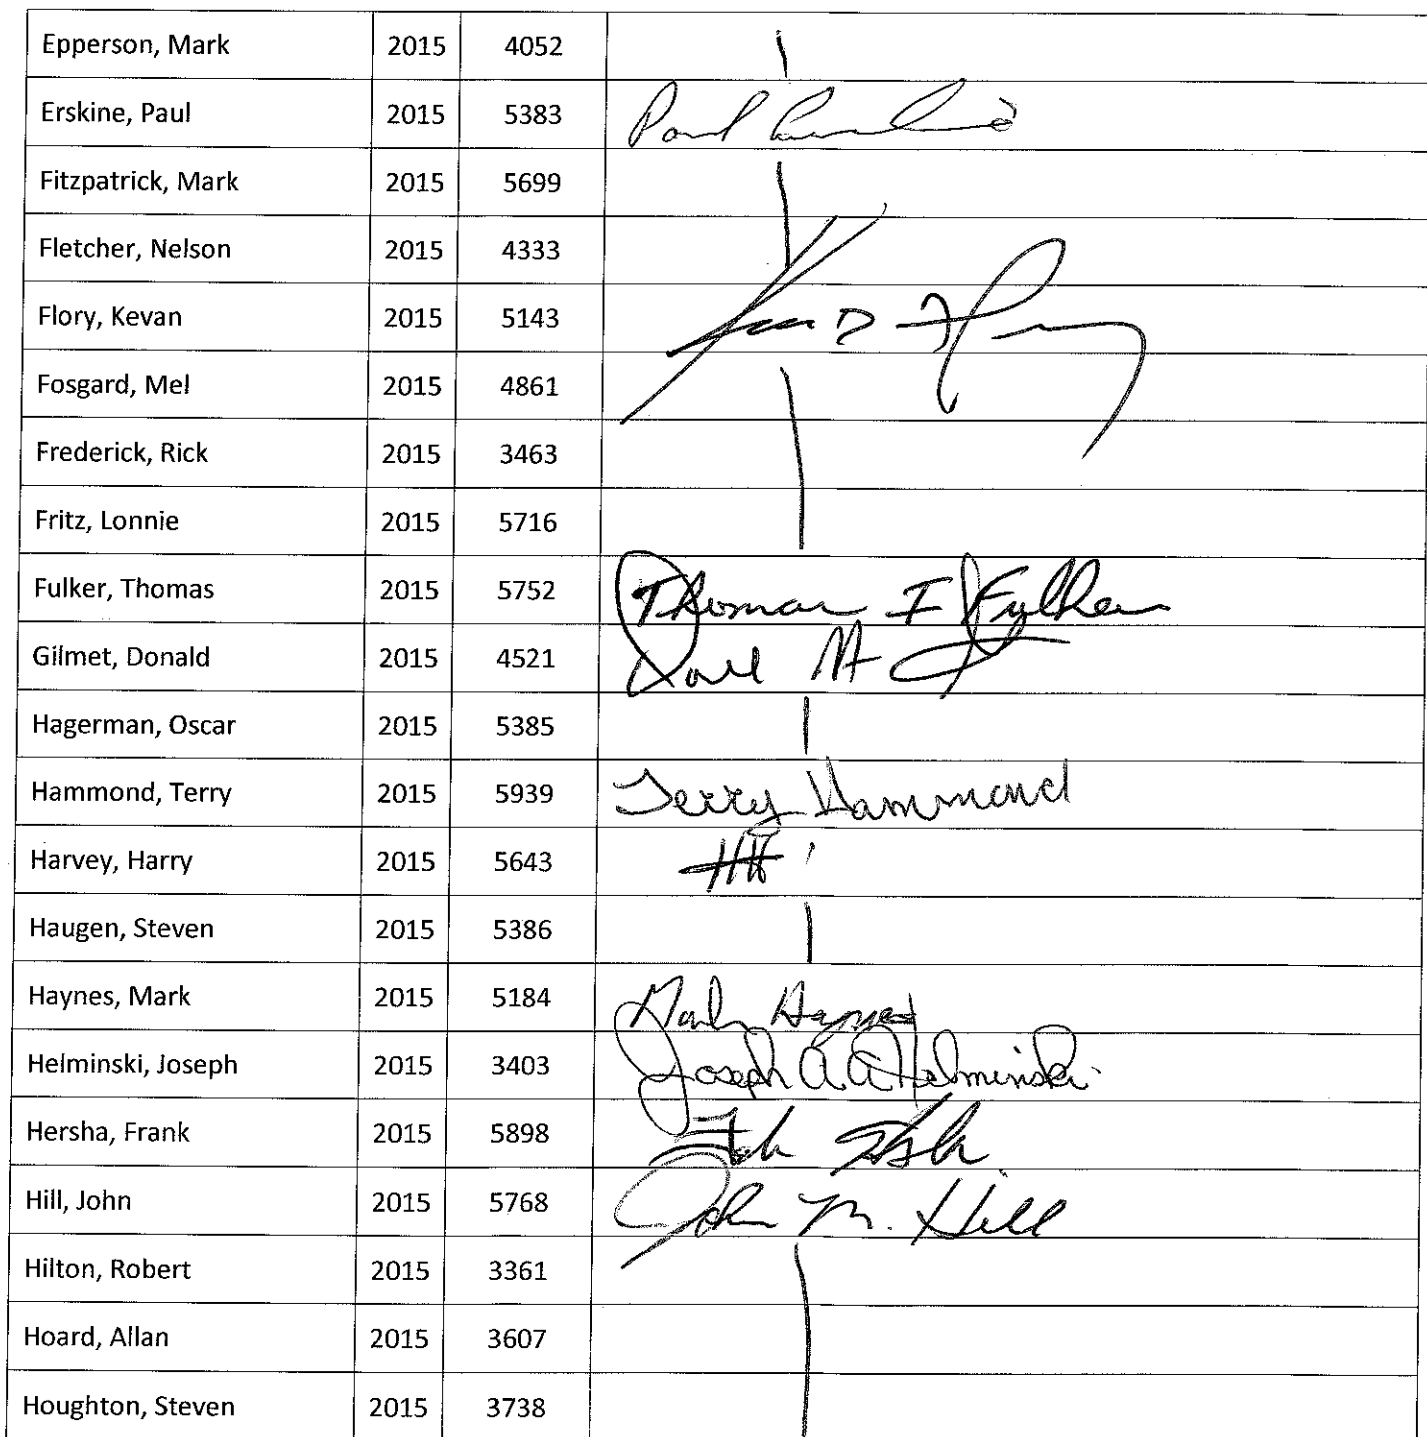 Epperson, Mark 2015 4052
Erskine, Paul 2015 5383 Paul
Fitzpatrick, Mark 2015 5699
Fletcher, Nelson 2015 4333
Flory, Kevan 2015 5143
Fosgard, Mel 2015 4861
Frederick, Rick 2015 3463
Fritz, Lonnie 2015 5716
Fulker, Thomas 2015 5752 Thomas F Fulker
Gilmet, Donald 2015 4521
Hagerman, Oscar 2015 5385
Hammond, Terry 2015 5939 Terry Hammond
Harvey, Harry 2015 5643 HH
Haugen, Steven 2015 5386
Haynes, Mark 2015 5184 Mark Haynes
Helminski, Joseph 2015 3403 Joseph A Helminski
Hersha, Frank 2015 5898
Hill, John 2015 5768 John M. Hill
Hilton, Robert 2015 3361
Hoard, Allan 2015 3607
Houghton, Steven 2015 3738